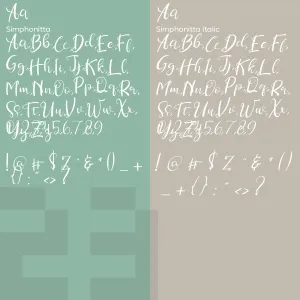 Aa
Simphonitta
Aa, Bb, Cc, Dd, Ee, Ff,
Gg, Hh, Ii, Jj, Kk, Ll,
Mm, Nn, Oo, Pp, Qq, Rr,
Ss, Tt, Uu, Vv, Ww, Xx,
Yy, Zz
0 1 2 3 4 5 6 7 8 9
! @ # $ % ^ & * () _ +
{} : " <> ?
Aa
Simphonitta Italic
Aa, Bb, Cc, Dd, Ee, Ff,
Gg, Hh, Ii, Jj, Kk, Ll,
Mm, Nn, Oo, Pp, Qq, Rr,
Ss, Tt, Uu, Vv, Ww, Xx,
Yy, Zz
0 1 2 3 4 5 6 7 8 9
! @ # $ % ^ & * ()
_ + {} : " <> ?